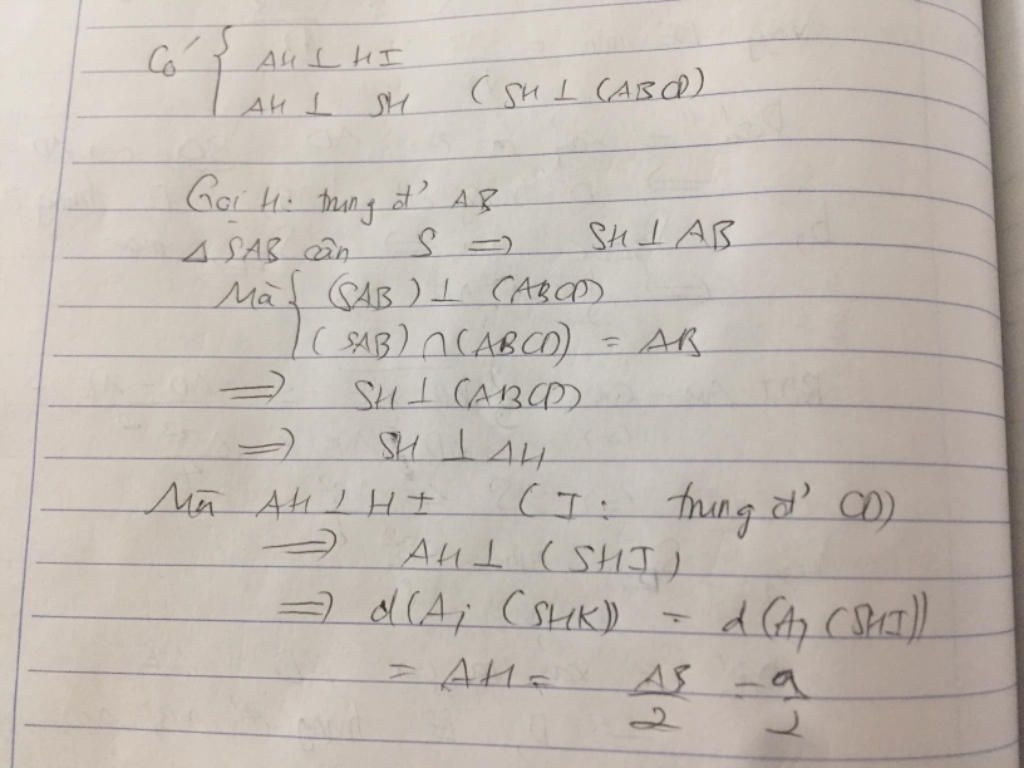 Có { AH ⊥ HI
AH ⊥ SH (SH ⊥ (ABCD)
Gọi H: trung đ' AB
Δ SAB cân S => SH ⊥ AB
Mà { (SAB) ⊥ (ABCD)
(SAB) ∩ (ABCD) = AB
=> SH ⊥ (ABCD)
=> SH ⊥ AH
Mà AH ⊥ HI (I: trung đ' CD)
=> AH ⊥ (SHI)
=> d(A; (SHK)) = d(A, (SHI))
= AH = AB/2 = a/2